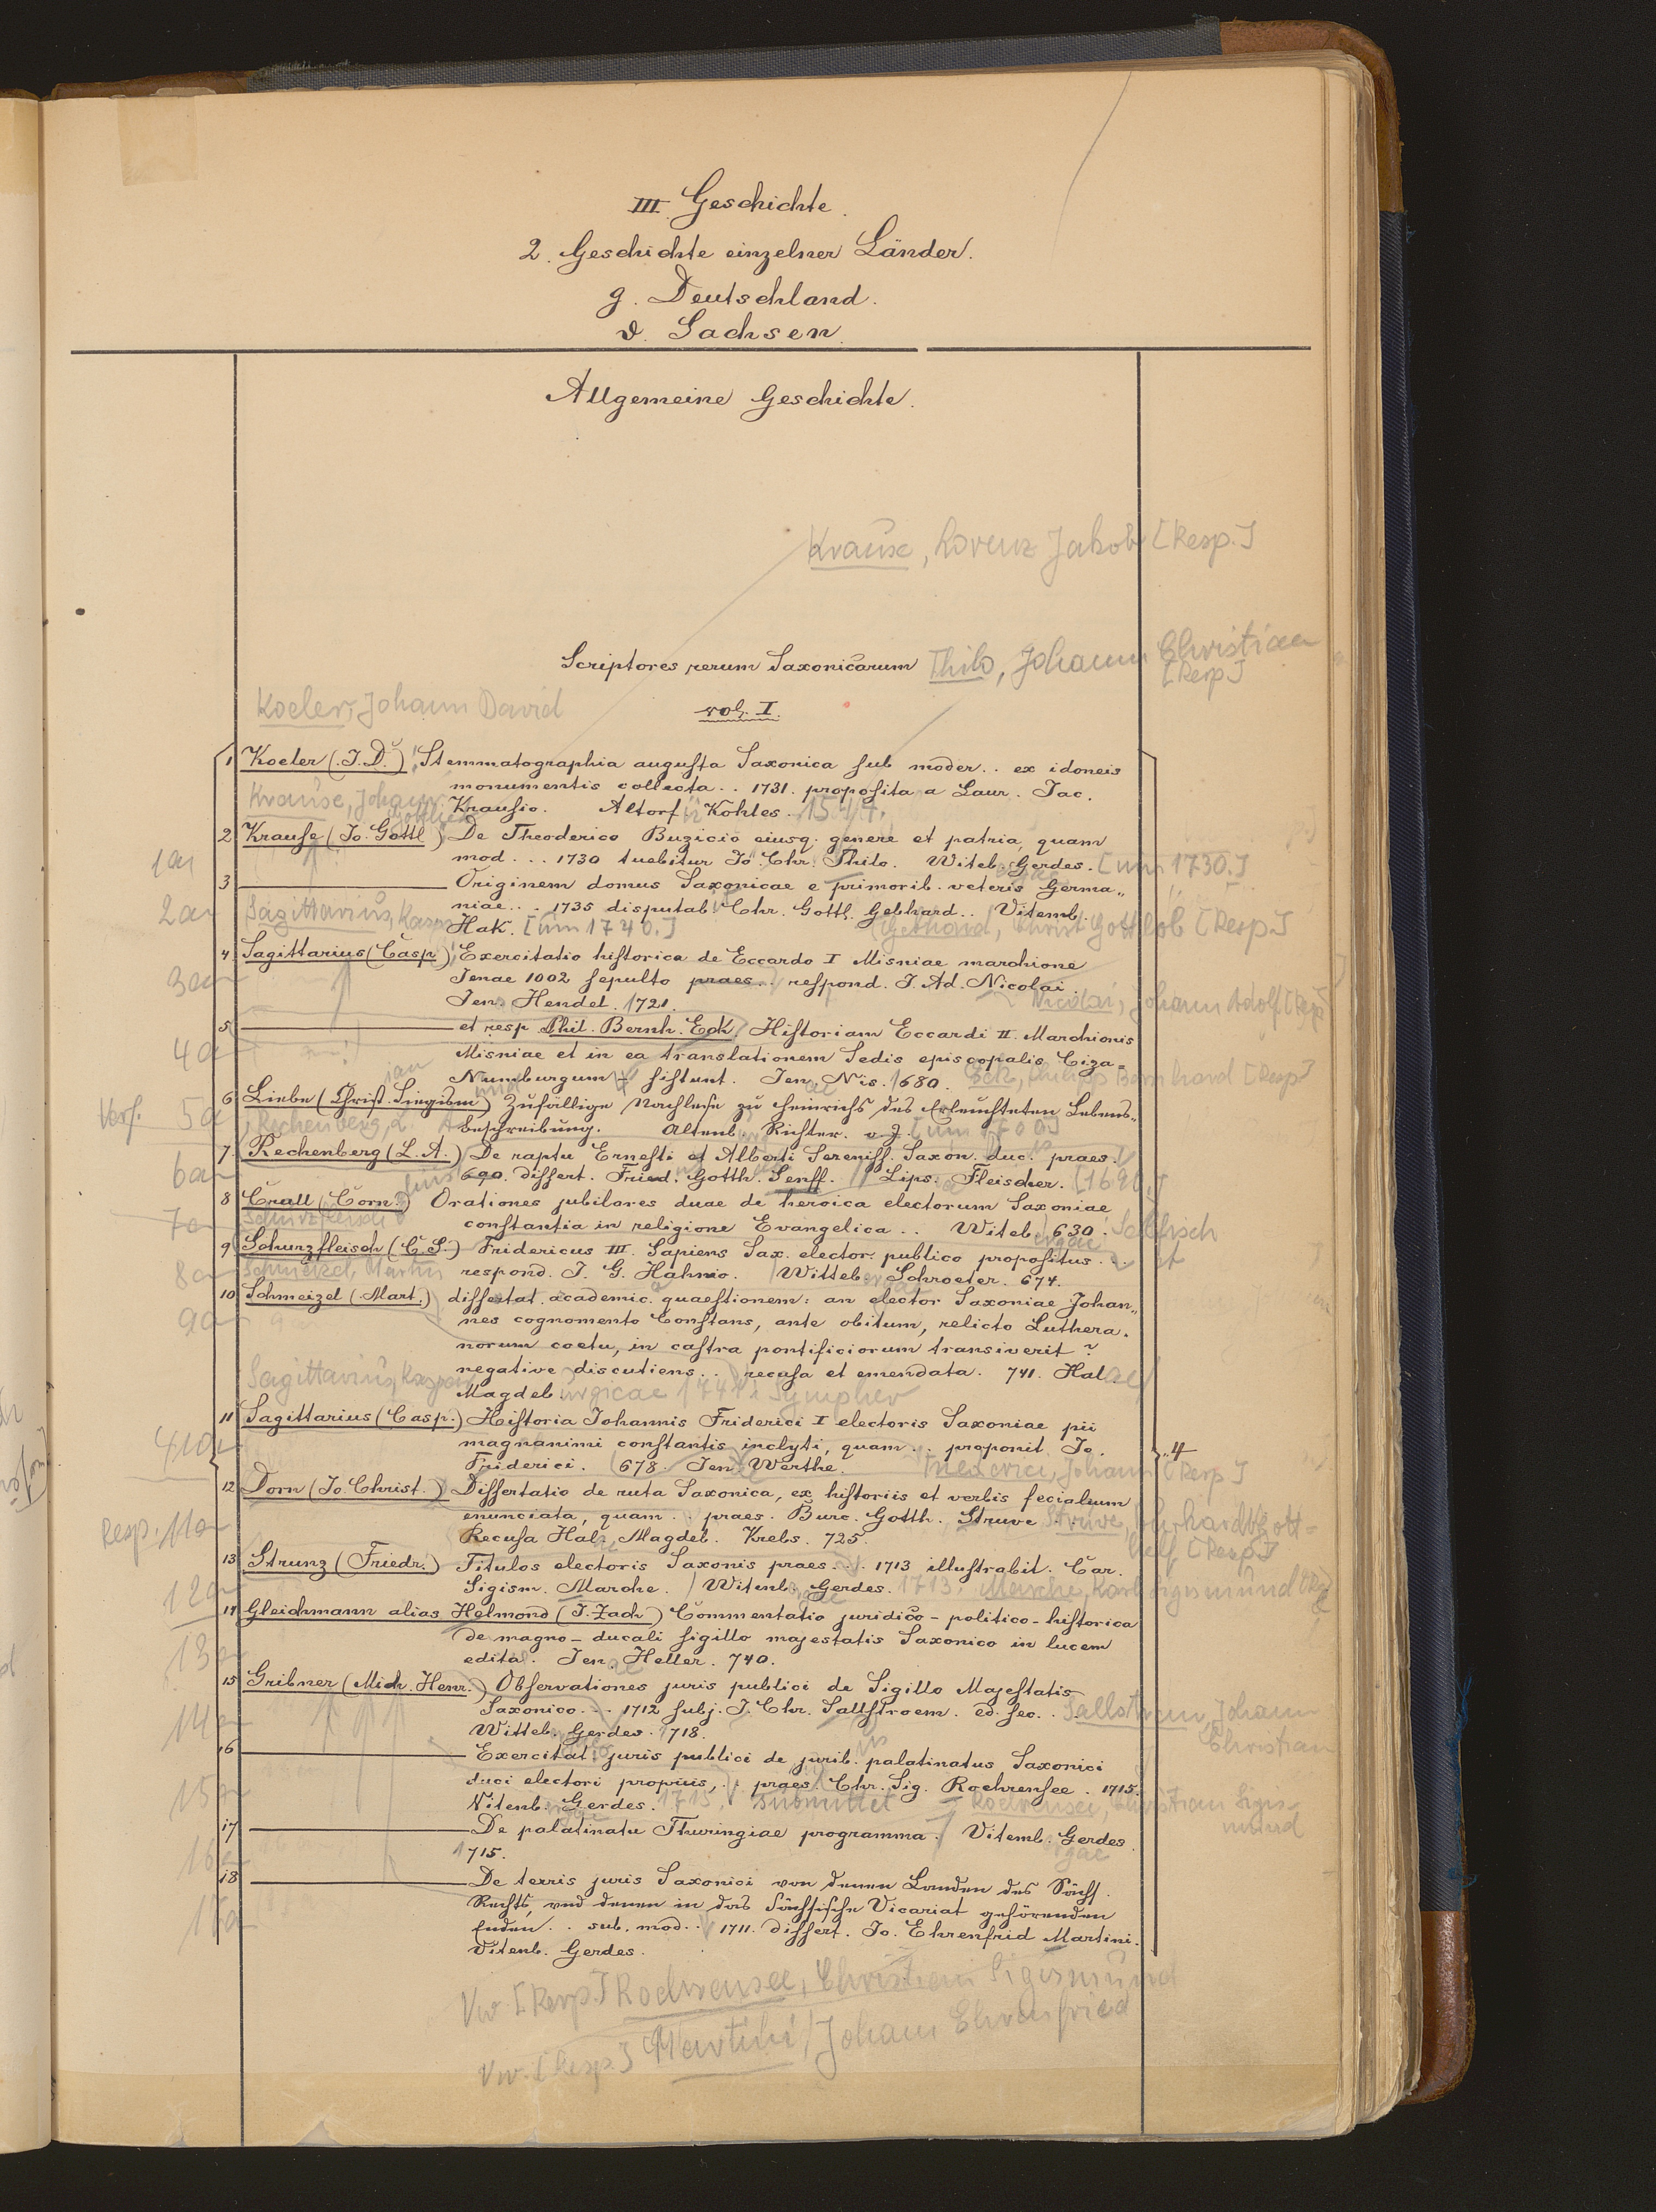 III. Geschichte.
2. Geschichte einzelner Länder.
g. Deutschland.
ϑ. Sachsen.
Allgemeine Geschichte.
Krause, Lorenz Jakob [Resp.]
Scriptores rerum Saxonicarum Thilo, Johann Christian
[Resp]
Koeler, Johann David
vol. I.
1 Koeler (J. D.) Stemmatographia augusta Saxonica sub moder.. ex idoneis
monumentis collecta.. 1731. proposita a Laur. Jac.
Krause, Johann Krausio. Altorf Kohles.
Gottlieb
2 Krause (Jo. Gottl) De Theoderico Buzicio eiusq. genere et patria, quam
1a mod... 1730 tuebitur Jo. Chr. Thilo. Witeb. Gerdes. [um 1730.]
3 Originem domus Saxonicae e primorib. veteris Germa„
2a niae... 1735 disputab. Chr. Gottl. Gebhard.. Vitemb.
Sagittarius, Kaspar Hak. [um 1740.] Gebhard, Christ. Gottlob [Resp.]
4 Sagittarius (Casp.) Exercitatio historica de Eccardo I Misniae marchione
3a Jenae 1002 sepulto praes... respond. J. Ad. Nicolai.
Jen. Hendel. 1721. Nicolai, Johann Adolf [Resp]
5 et resp Phil. Bernh. Eck Historiam Eccardi II. Marchionis
4a Misniae et in ea translationem Sedis episcopalis Ciza-
Numburgum sistunt. Jen. Nis. 1680. Eck, Philipp Bernhard [Resp]
6 Liebe (Christ. Siegism) Zufällige Nachlese zu Heinrichs des Erleuchteten Lebens„
Verf. 5a Rechenberg, L. A beschreibung. Altenb. Richter. o. J. [um 1700]
7 Rechenberg (L. A.) De raptu Ernesti et Alberti Sereniss. Saxon. duc. praes.
6a 690. dissert. Fried. Gotth. Senff. Lips. Fleischer. [1690.]
8 Crull (Corn.) Orationes jubilares duae de heroica electorum Saxoniae
7a Schurzfleisch constantia in religione Evangelica.. Witeb. 630.
9 Schurzfleisch (C. S.) Fridericus III. Sapiens Sax. elector. publico propositus...
8a Schmeizel, Martin respond. J. G. Hahnio. Witteb. Schroeter. 674.
10 Schmeizel (Mart.) dissertat. academic. quaestionem: an elector Saxoniae Johan„
9a nes cognomento Constans, ante obitum, relicto Luthera„
norum coetu, in castra pontificiorum transiverit?
negative discutiens... recusa et emendata. 741. Halae
Sagittarius, Kaspar Magdeburgicae 1741. Sympher
11 Sagittarius (Casp.) Historia Johannis Friderici I electoris Saxoniae pii
10a magnanimi constantis inclyti, quam... proponit Jo. „4
Friderici. 678. Jen. Werthe. Friderici, Johann [Resp]
12 Dorn (Jo. Christ.) Dissertatio de ruta Saxonica, ex historiis et verbis fecialium
Resp. 11a enunciata, quam... praes. Burc. Gotth. Struve. Struve, Burkhard Gott-
Recusa Hal. Magdeb. Krebs. 725. helf [Resp]
13 Strunz (Friedr.) Titulos electoris Saxonis praes... 1713 illustrabit. Car.
12a Sigism. Marche. Witenb. Gerdes. 1713. Marche, Karl Sigismund
14 Gleichmann alias Helmond (J. Zach) Commentatio juridico-politico-historica
13a de magno-ducali sigillo majestatis Saxonico in lucem
edita. Jen. Heller. 740.
15 Gribner (Mich. Henr.) Observationes juris publici de Sigillo Majestatis
14a Saxonico... 1712 subj. J. Chr. Sallstroem. ed. sec.. Sallstroem, Johann
Witteb. Gerdes. 1718. Christian
16 Exercitat. juris publici de jurib. palatinatus Saxonici
15a duci electori propriis,.. praes. Chr. Sig. Rochrensee. 1715.
Vitenb. Gerdes. 1715. submittet Rochrensee, Christian Sigis-
mund
17 De palatinatu Thuringiae programma. Vitemb. Gerdes.
16a 1715.
18 De terris juris Saxonici von denen Landen des Sächs.
Rechts, und denen in das Sächsische Vicariat gehörenden
Enden.. sub. mod... 1711. dissert. Jo. Ehrenfrid Martini.
Vitenb. Gerdes.
Vw. [Resp.] Rochrensee, Christian Sigismund
Vw. [Resp] Martini, Johann Ehrenfried